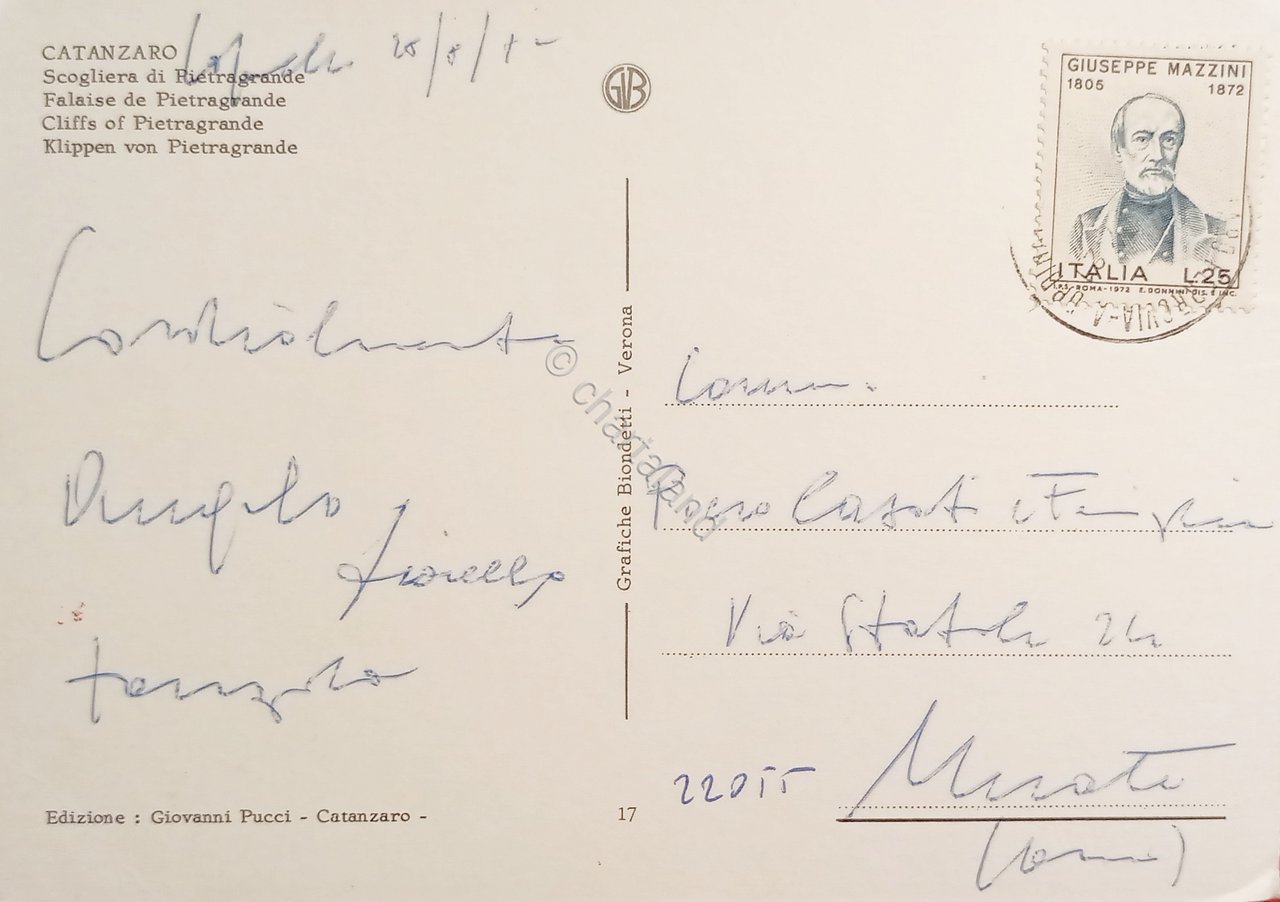 CATANZARO
Scogliera di Pietragrande
Falaise de Pietragrande
Cliffs of Pietragrande
Klippen von Pietragrande
GVB
GIUSEPPE MAZZINI
1805 1872
ITALIA L.25
I.P.S.-ROMA-1972 E. DONNINI DIS. E INC.
Cordialmente
Angelo
Fiorello
Grafiche Biondetti - Verona
© chartaland
Comm.
Casati e
Via Statale 24
22055 Merate
(Como)
Edizione : Giovanni Pucci - Catanzaro -
17